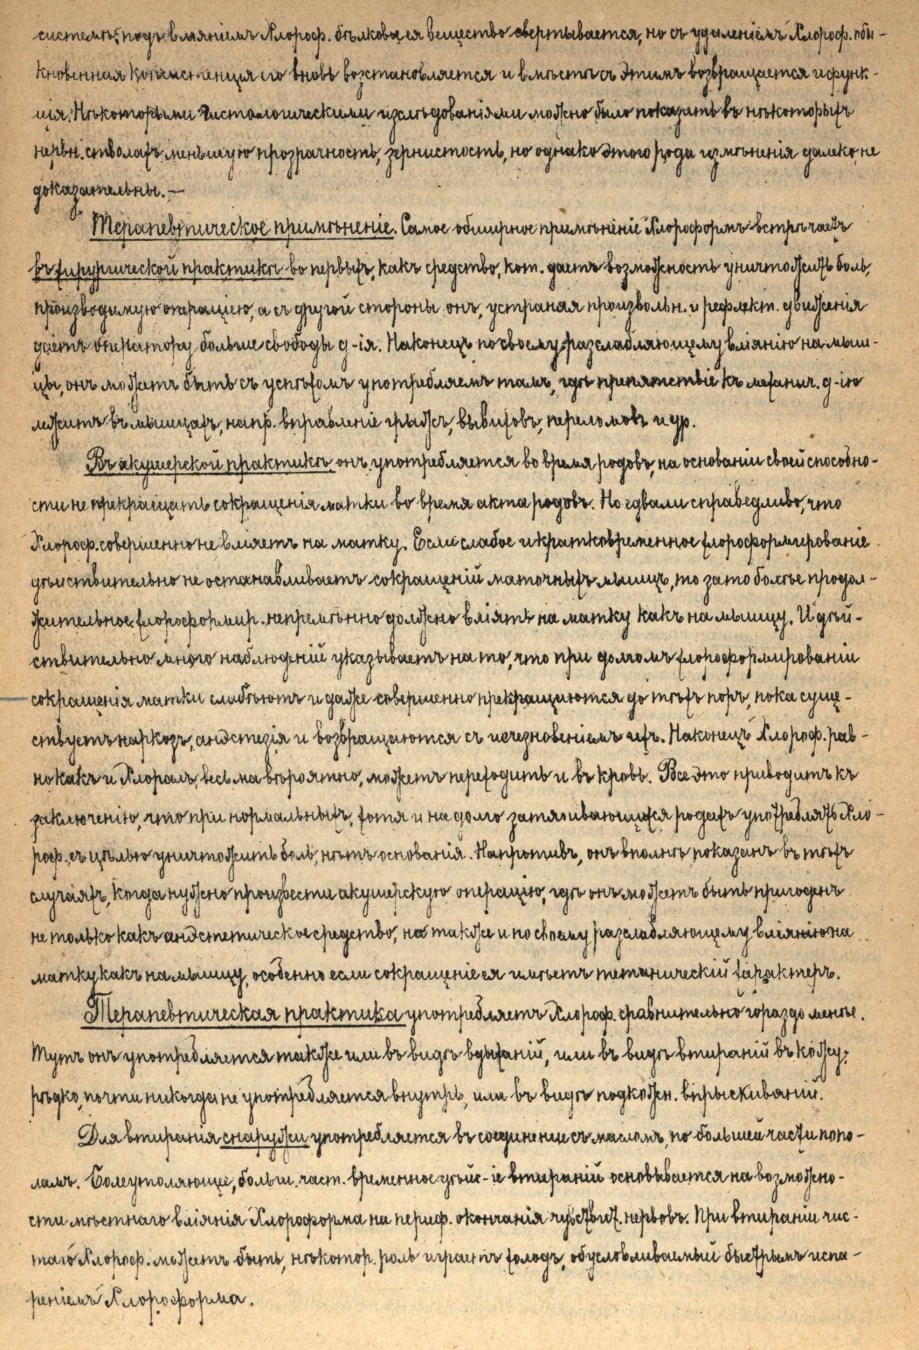 системъ; подъ вліяніемъ Хлороф. бѣлковая вещество свертывается, но съ удаленіемъ Хлороф. обы-
кновенная консистенція его вновь возстановляется и вмѣстѣ съ этимъ возвращается и функ-
ція. Нѣкоторыми гистологическими изслѣдованіями можно было показать въ нѣкоторыхъ
нервн. стволахъ меньшую прозрачность, зернистость, но однако этого рода измѣненія далеко не
доказательны. —
Терапевтическое примѣненіе. Самое обширное примѣненіе Хлороформъ встрѣчаетъ
въ хирургической практикѣ во первыхъ, какъ средство, кот. даетъ возможность уничтожать боль,
производимую операціею, а съ другой стороны онъ, устраняя произвольн. и рефлект. движенія
даетъ оператору больше свободы д-ія. Наконецъ по своему разслабляющему вліянію на мыш-
цы, онъ можетъ быть съ успѣхомъ употребляемъ тамъ, гдѣ препятствіе къ механич. д-ію
лежитъ въ мышцахъ, напр. вправленіе грыжъ, вывиховъ, переломовъ и др.
Въ акушерской практикѣ онъ употребляется во время родовъ, на основаніи своей способно-
сти не прекращать сокращенія матки во время акта родовъ. Но едвали справедливо, что
Хлороф. совершенно не вліяетъ на матку. Если слабое и кратковременное хлороформированіе
дѣйствительно не останавливаетъ сокращеній маточныхъ мышцъ, то зато болѣе продол-
жительное хлороформир. непремѣнно должно вліять на матку какъ на мышцу. И дѣй-
ствительно много наблюденій указываетъ на то, что при долгомъ хлороформированіи
сокращенія матки слабѣютъ и даже совершенно прекращаются до тѣхъ поръ, пока суще-
ствуетъ наркозъ, анэстезія и возвращаются съ исчезновеніемъ ихъ. Наконецъ Хлороф. рав-
но какъ и Хлоралъ, весьма вѣроятно, можетъ переходить и въ кровь. Все это приводитъ къ
заключенію, что при нормальныхъ, хотя и на долго затягивающихся родахъ употреблять Хло-
роф. съ цѣлью уничтожить боль, нѣтъ основанія. Напротивъ, онъ вполнѣ показанъ въ тѣхъ
случаяхъ, когда нужно произвести акушерскую операцію, гдѣ онъ можетъ быть пригоденъ
не только какъ анэстетическое средство, но также и по своему разслабляющему вліянію на
матку какъ на мышцу, особенно если сокращеніе ея имѣетъ тетаническій характеръ.
Терапевтическая практика употребляетъ Хлороф. сравнительно гораздо менѣе.
Тутъ онъ употребляется также или въ видѣ вдыханій, или въ видѣ втираній въ кожу;
рѣдко, почти никогда не употребляется внутрь, или въ видѣ подкожн. впрыскиваній.
Для втиранія снаружи употребляется въ соединеніе съ масломъ, по большей части попо-
ламъ. Болеутоляющее, больш. част. временное дѣйс-іе втираній основывается на возможно-
сти мѣстнаго вліянія Хлороформа на периф. окончанія чувствит. нервовъ. При втираніе чис-
таго Хлороф. можетъ быть, нѣкотор. роль играетъ холодъ, обусловливаемый быстрымъ испа-
реніемъ Хлороформа.